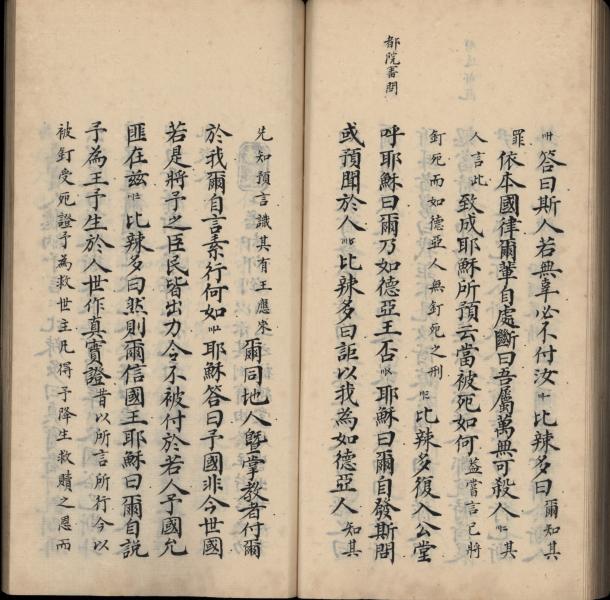 都院審問
卅答曰斯人若無辜必不付汝比辣多曰爾知其
罪依本國律爾輩自處斷曰吾屬萬無可殺人其
人言此致成耶穌所預云當被死如何蓋嘗言己將
釘死而如德亞人無釘死之刑比辣多復入公堂
呼耶穌曰爾乃如德亞王否耶穌曰爾自發斯問
或預聞於人比辣多曰詎以我為如德亞人知其
先知預言識其有王應來爾同地人暨掌教者付爾
於我爾自言素行何如耶穌答曰予國非今世國
若是將予之臣民皆出力令不被付於若人予國允
匪在茲比辣多曰然則爾信國王耶穌曰爾自說
予為王予生於入世作真實證昔以所言所行今以
被釘受死證予為救世主凡得予降生救贖之恩而